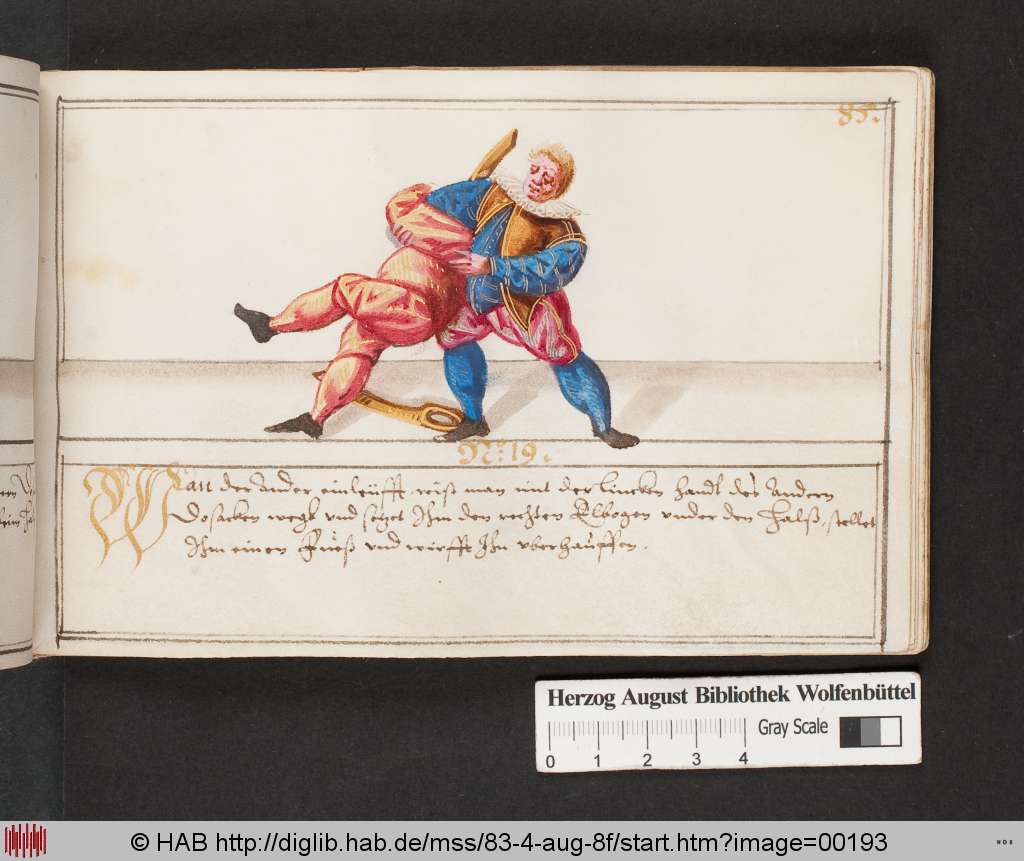 85.
Nº: 19.
Wan der ander einleüfft, reiß man mit der lincken handt des andern
Dosacken wegk und setzet Ihm den rechten Elbogen under den Halß, stellet
Ihm einen Fueß und wirfft Ihn uberhauffen.
Herzog August Bibliothek Wolfenbüttel
Gray Scale
0 1 2 3 4
© HAB http://diglib.hab.de/mss/83-4-aug-8f/start.htm?image=00193